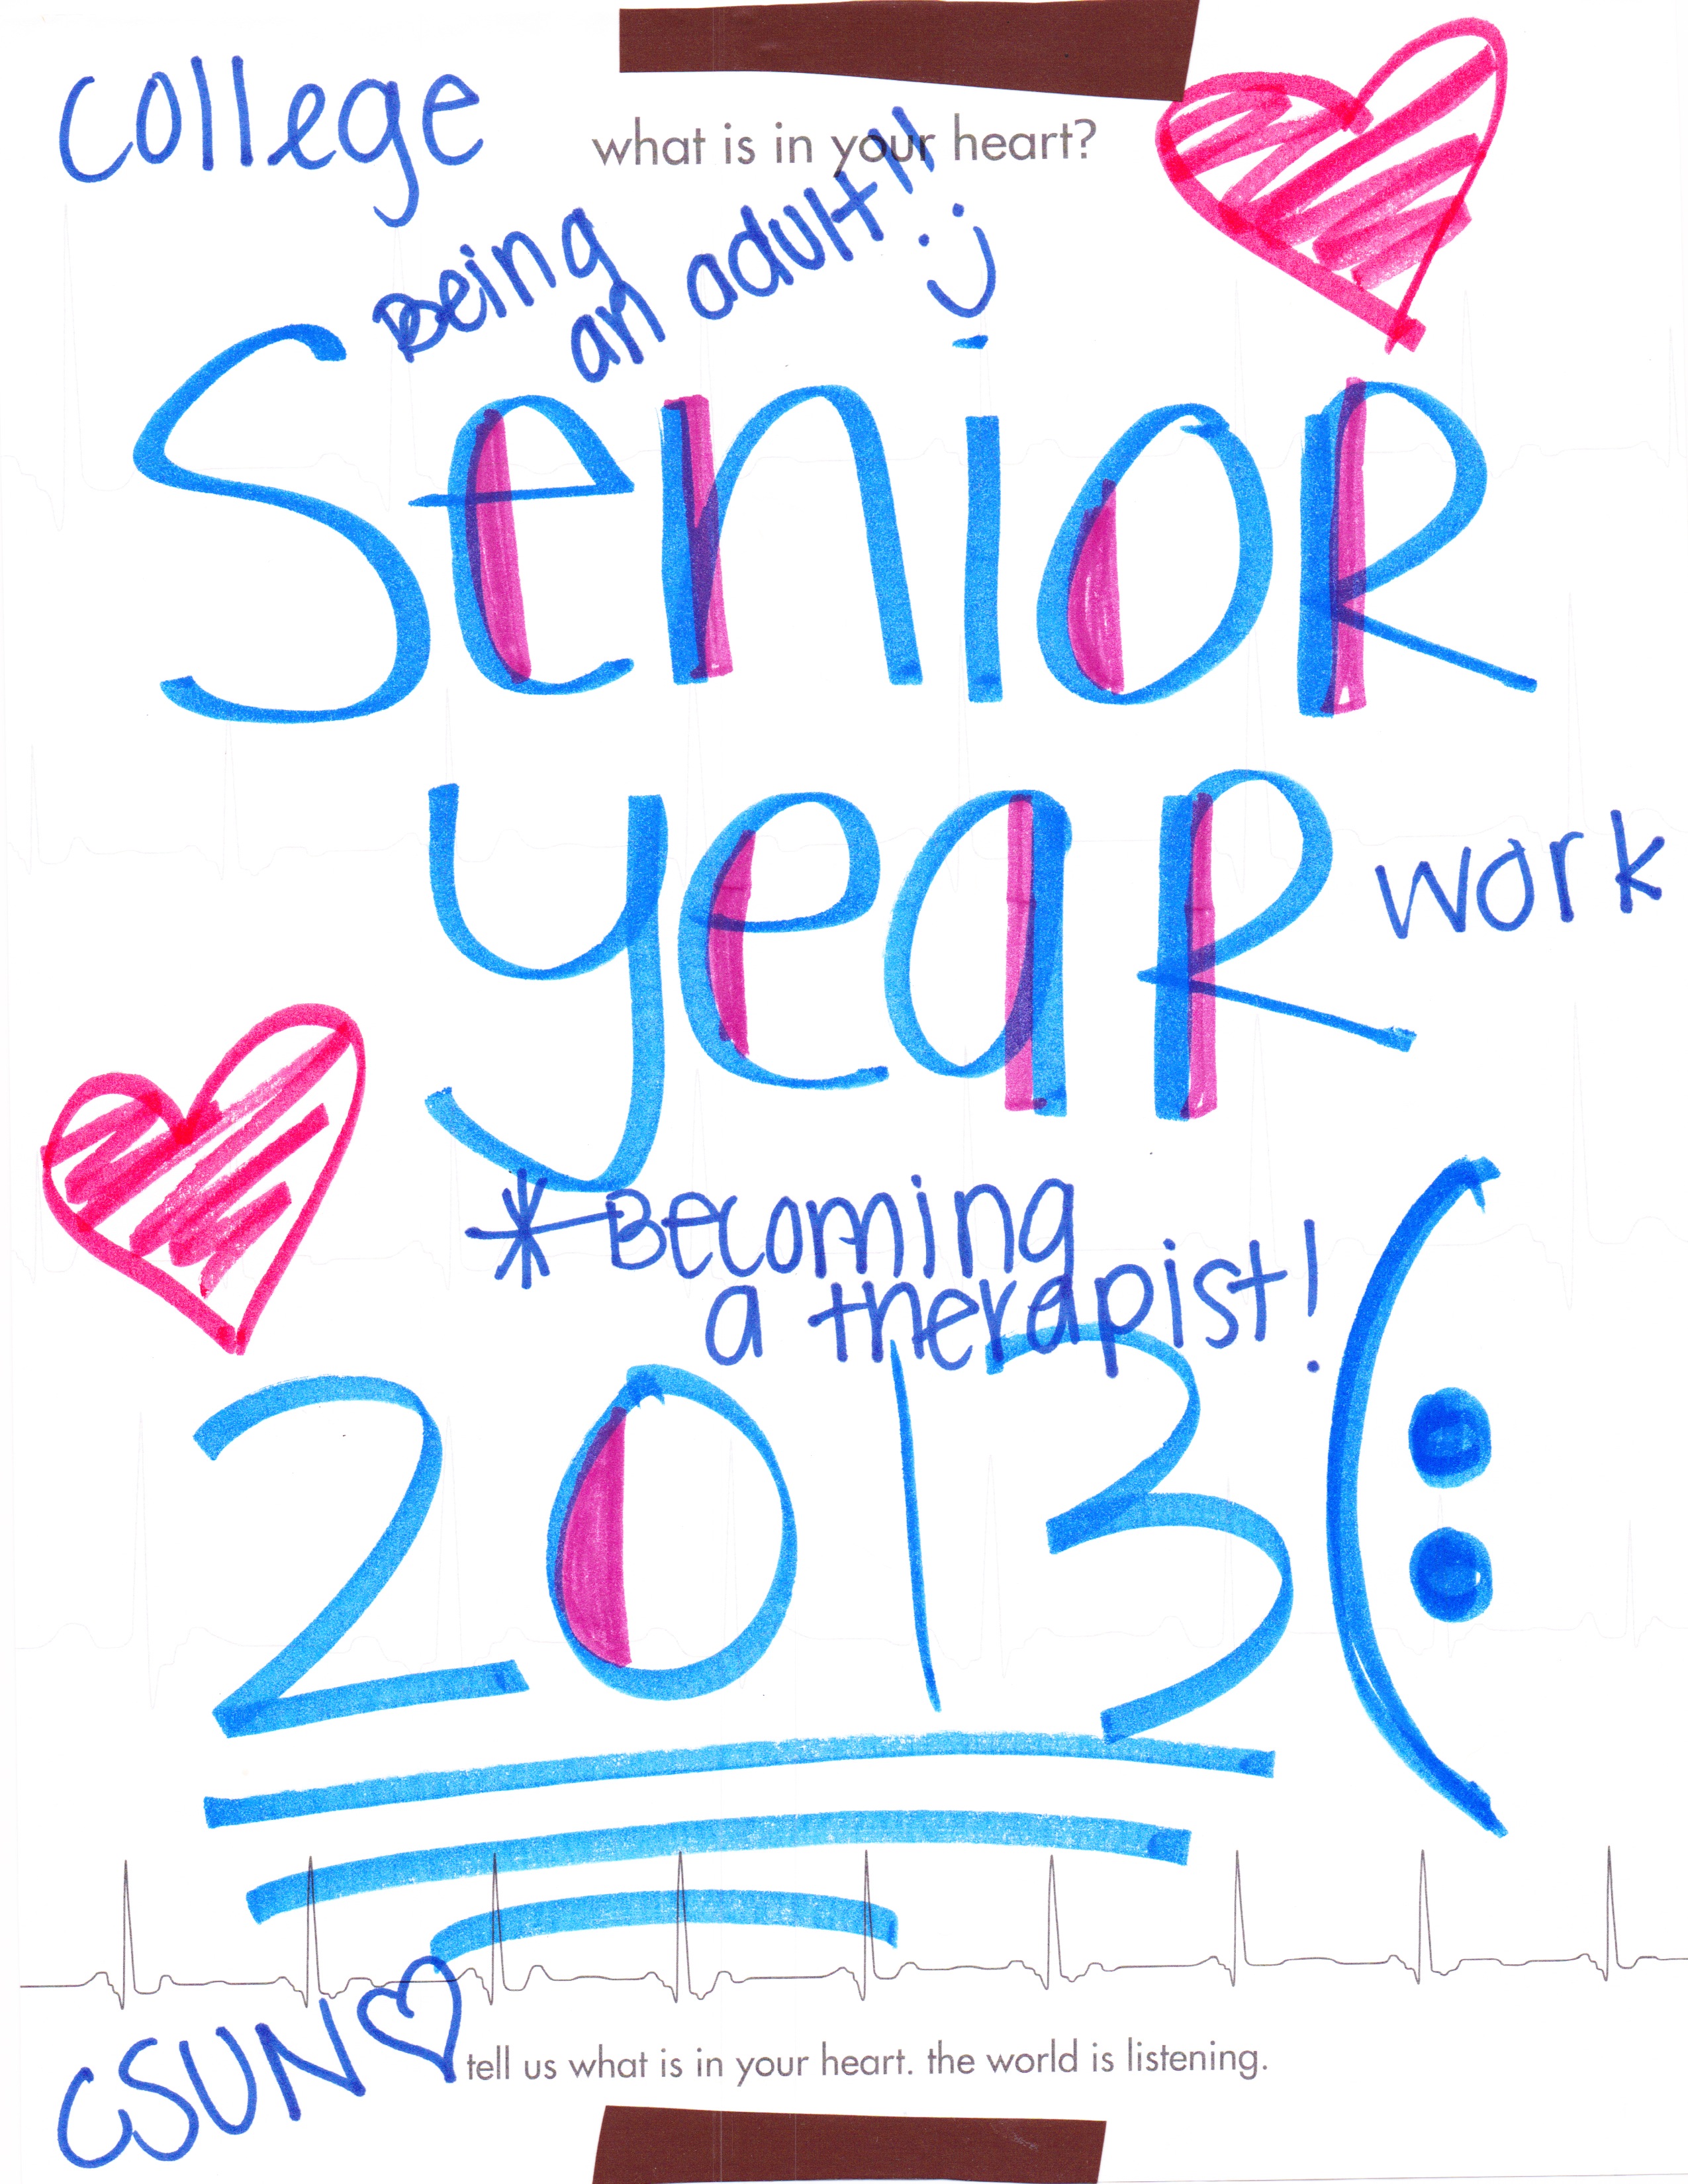 college
what is in your heart?
Being
an adult!! :)
Senior
year
work
*Becoming
a therapist!
2013(:
CSUN♡
tell us what is in your heart. the world is listening.